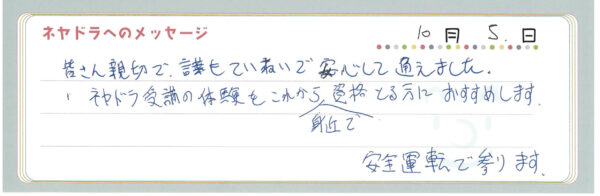 ネヤドラへのメッセージ
10月 5.日
皆さん親切で、講義もていねいで安心して通えました。
ネヤドラ受講の体験をこれから、資格とる方におすすめします。
身近で
安全運転で参ります。